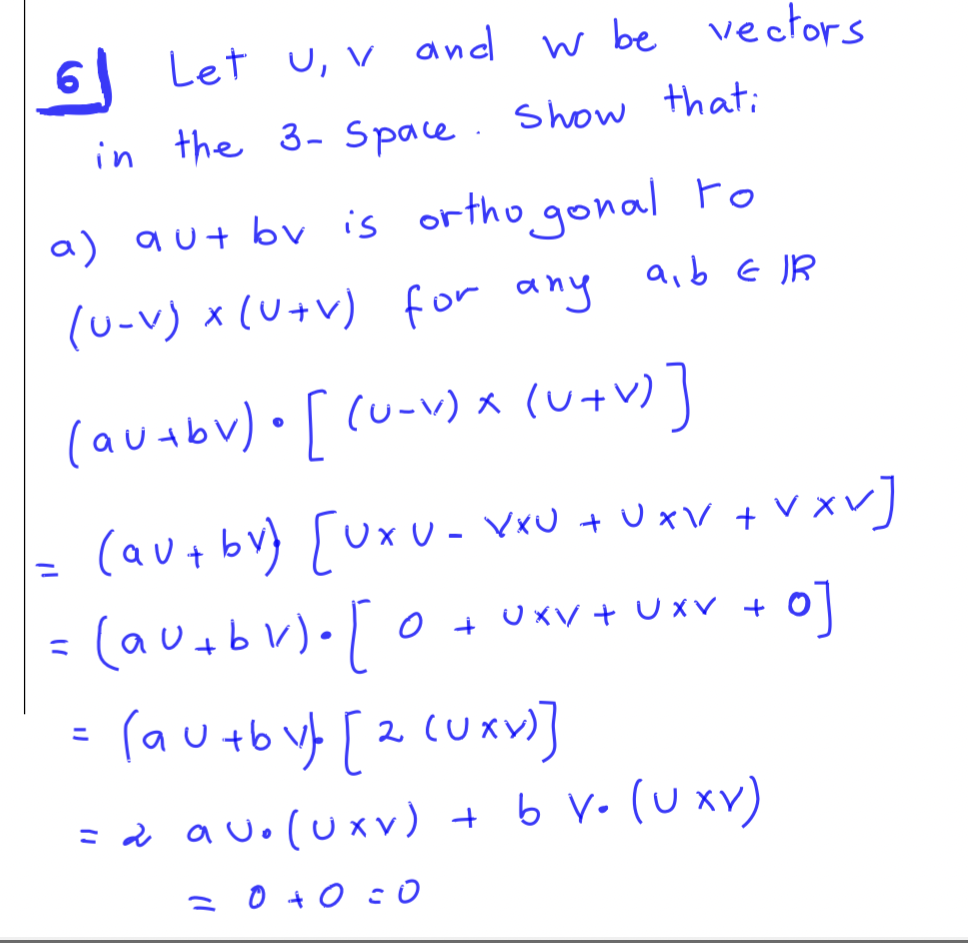 6) Let u, v and w be vectors
in the 3-space. Show that:
a) au + bv is orthogonal to
(u-v) × (u+v) for any a,b ∈ ℝ
(au+bv) • [(u-v) × (u+v)]
= (au+bv) [u×u - v×u + u×v + v×v]
= (au+bv) • [0 + u×v + u×v + 0]
= (au+bv) • [2(u×v)]
= 2 au•(u×v) + b v•(u×v)
= 0 + 0 = 0